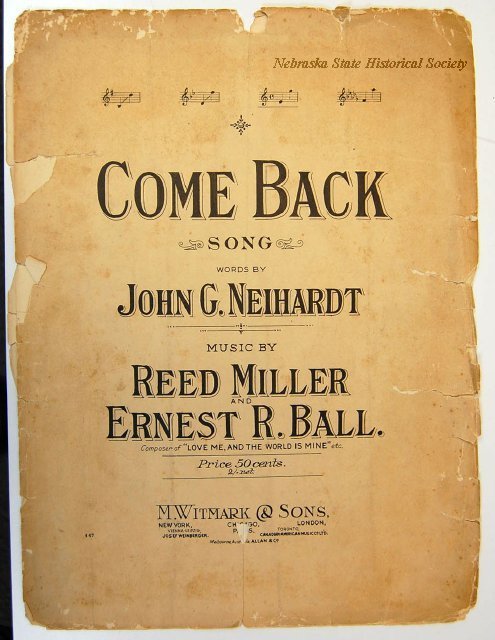 Nebraska State Historical Society
COME BACK
SONG
WORDS BY
JOHN G. NEIHARDT
MUSIC BY
REED MILLER
AND
ERNEST R. BALL.
Composer of "LOVE ME, AND THE WORLD IS MINE" etc.
Price 50 cents.
2/- net.
M. WITMARK & SONS,
NEW YORK, CHICAGO, LONDON,
VIENNA-LEIPZIG, PARIS, TORONTO,
JOSEF WEINBERGER. CANADIAN AMERICAN MUSIC CO LTD.
Melbourne Australia, ALLAN & CO